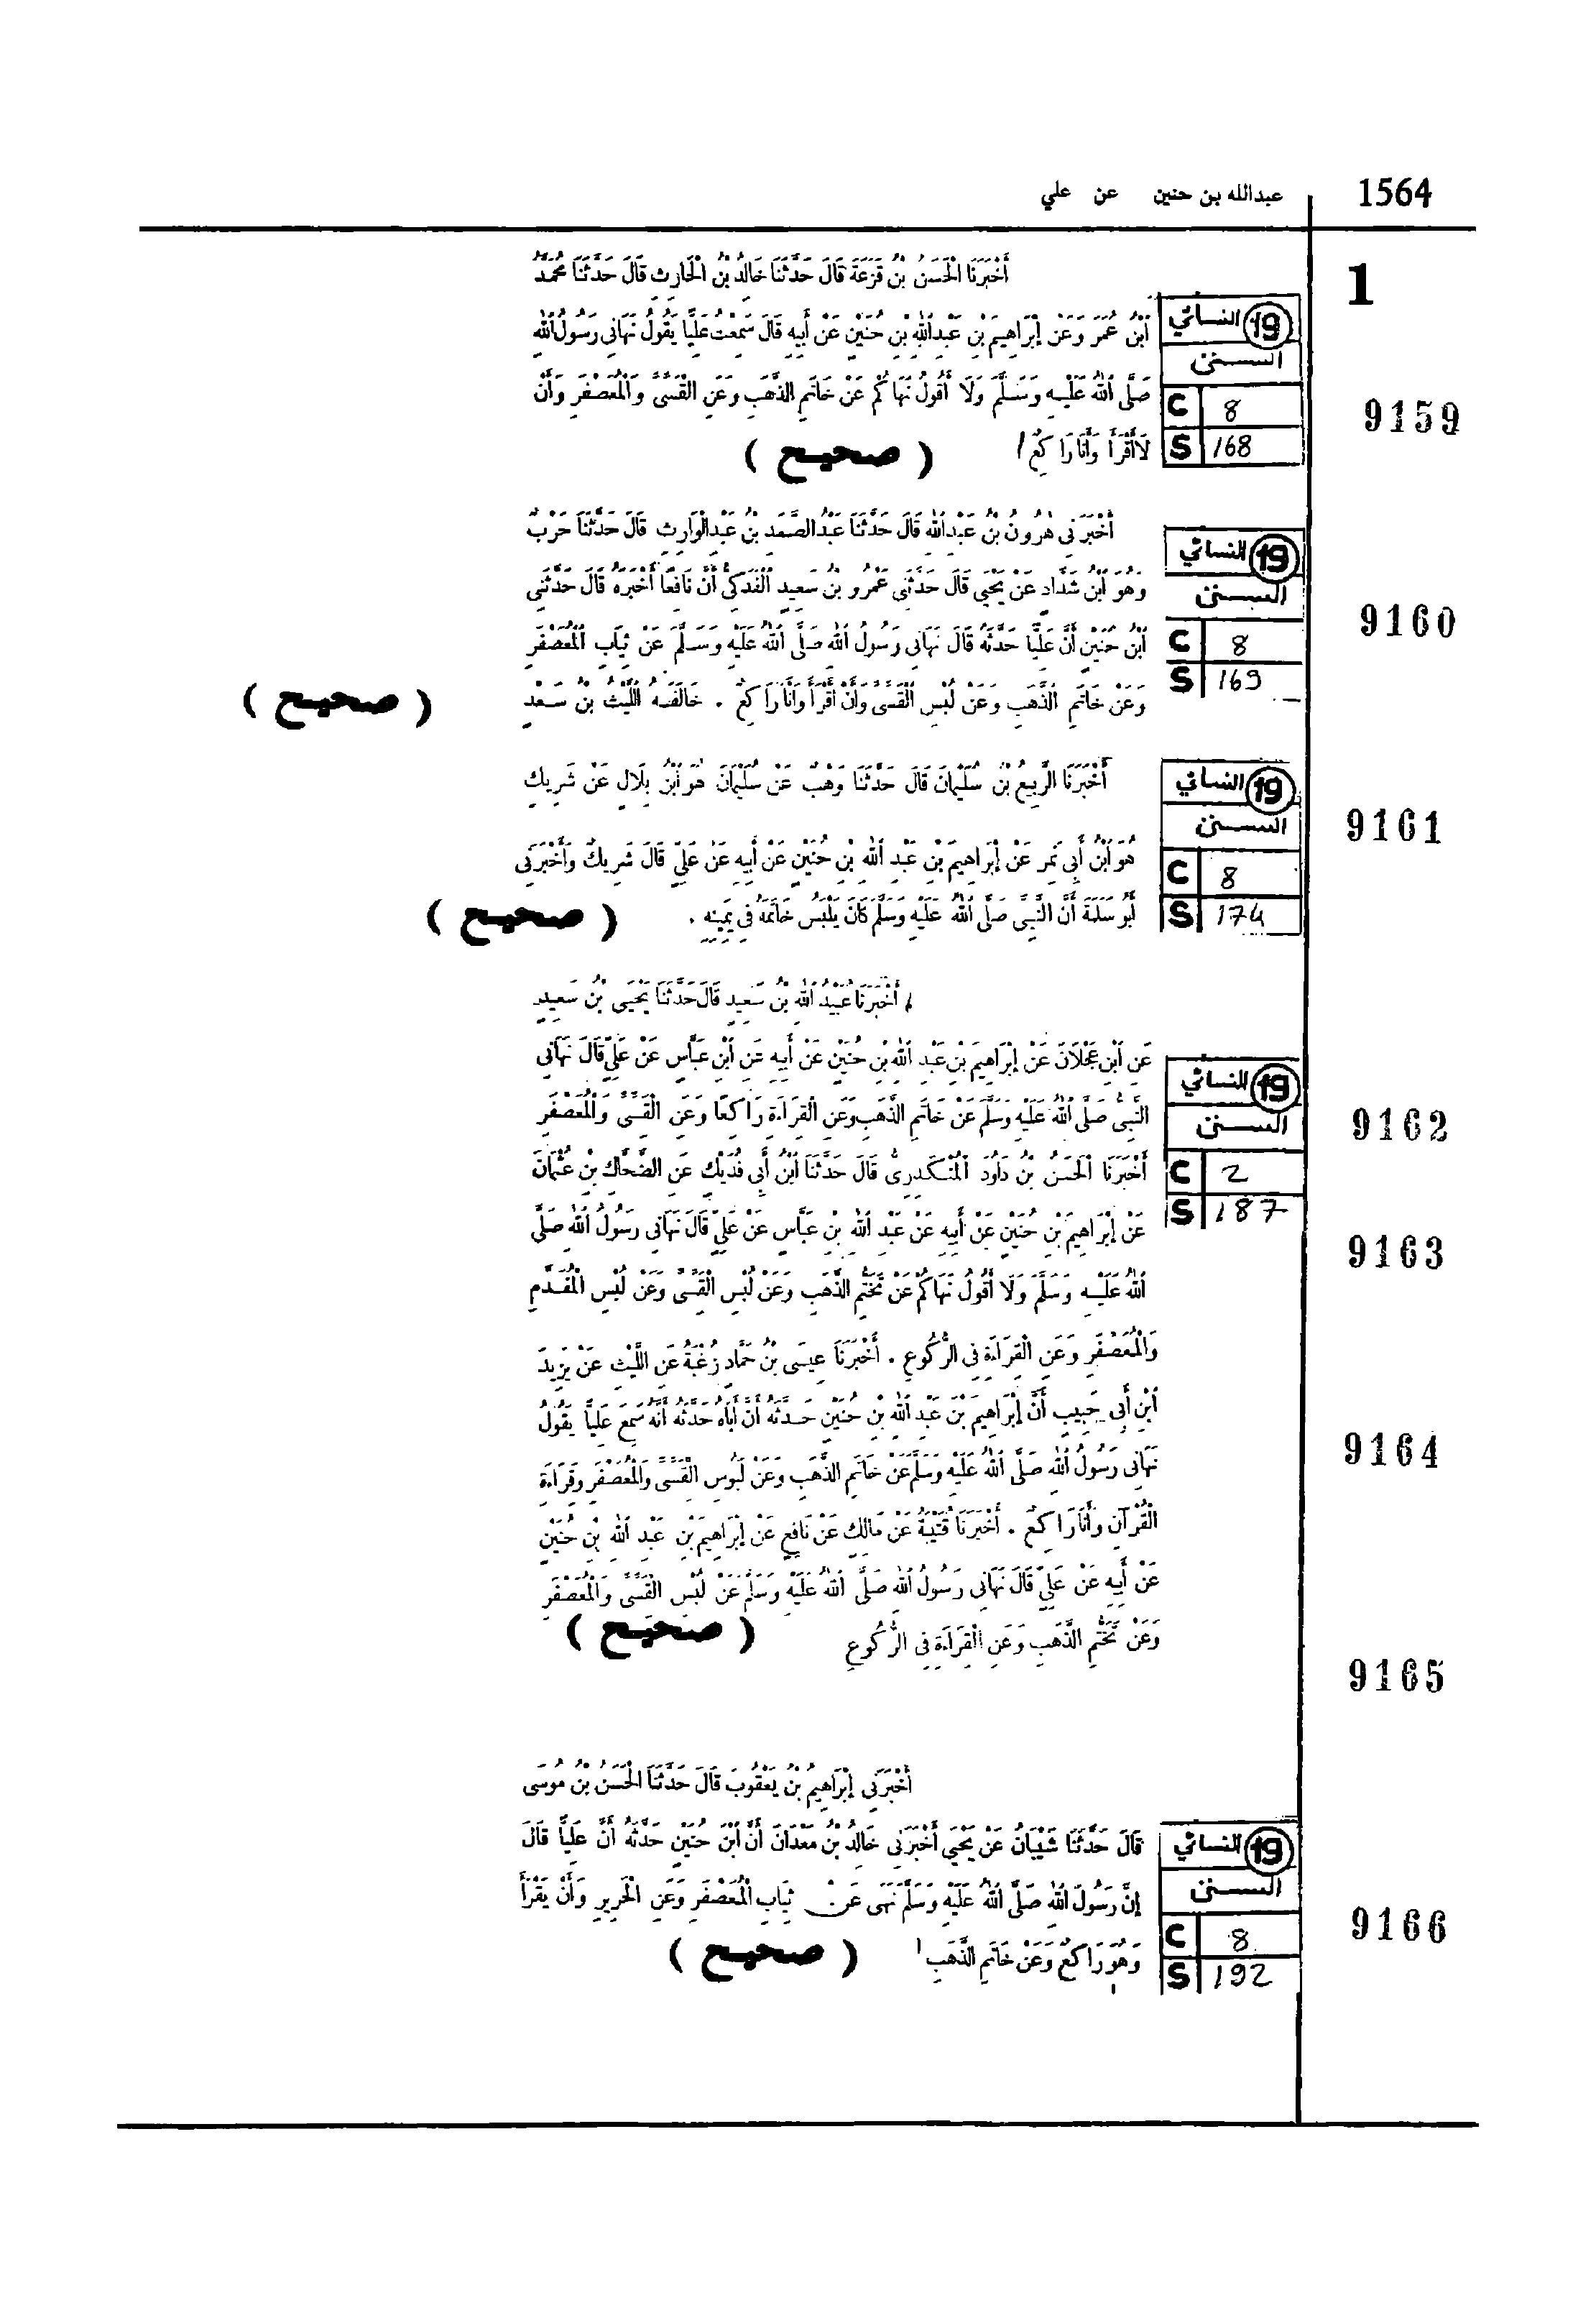 1564 عبدالله بن حنين عن علي
1
أَخْبَرَنَا الْحَسَنُ بْنُ قَزَعَةَ قَالَ حَدَّثَنَا خَالِدُ بْنُ الْحَارِثِ قَالَ حَدَّثَنَا مُحَمَّدُ
ابْنُ عُمَرَ وَعَنْ إِبْرَاهِيمَ بْنِ عَبْدِ اللهِ بْنِ حُنَيْنٍ عَنْ أَبِيهِ قَالَ سَمِعْتُ عَلِيًّا يَقُولُ نَهَانِي رَسُولُ اللهِ
صَلَّى اللهُ عَلَيْهِ وَسَلَّمَ وَلَا أَقُولُ نَهَاكُمْ عَنْ خَاتَمِ الذَّهَبِ وَعَنِ الْقَسِّيِّ وَالْمُعَصْفَرِ وَأَنْ
لَا أَقْرَأَ وَأَنَا رَاكِعٌ ( صحيح )
19 النسائي
السنن
C 8
S 168
9159
أَخْبَرَنِي هٰرُونُ بْنُ عَبْدِ اللهِ قَالَ حَدَّثَنَا عَبْدُ الصَّمَدِ بْنُ عَبْدِ الْوَارِثِ قَالَ حَدَّثَنَا حَرْبٌ
وَهُوَ ابْنُ شَدَّادٍ عَنْ يَحْيَى قَالَ حَدَّثَنِي عَمْرُو بْنُ سَعِيدٍ الْفَدَكِيُّ أَنَّ نَافِعًا أَخْبَرَهُ قَالَ حَدَّثَنِي
ابْنُ حُنَيْنٍ أَنَّ عَلِيًّا حَدَّثَهُ قَالَ نَهَانِي رَسُولُ اللهِ صَلَّى اللهُ عَلَيْهِ وَسَلَّمَ عَنْ ثِيَابِ الْمُعَصْفَرِ
وَعَنْ خَاتَمِ الذَّهَبِ وَعَنْ لُبْسِ الْقَسِّيِّ وَأَنْ أَقْرَأَ وَأَنَا رَاكِعٌ . خَالَفَهُ اللَّيْثُ بْنُ سَعْدٍ ( صحيح )
19 النسائي
السنن
C 8
S 169
9160
أَخْبَرَنَا الرَّبِيعُ بْنُ سُلَيْمَانَ قَالَ حَدَّثَنَا وَهْبٌ عَنْ سُلَيْمَانَ هُوَ ابْنُ بِلَالٍ عَنْ شَرِيكٍ
هُوَ ابْنُ أَبِي نَمِرٍ عَنْ إِبْرَاهِيمَ بْنِ عَبْدِ اللهِ بْنِ حُنَيْنٍ عَنْ أَبِيهِ عَنْ عَلِيٍّ قَالَ شَرِيكٌ وَأَخْبَرَنِي
أَبُو سَلَمَةَ أَنَّ النَّبِيَّ صَلَّى اللهُ عَلَيْهِ وَسَلَّمَ كَانَ يَلْبَسُ خَاتَمَهُ فِي يَمِينِهِ . ( صحيح )
19 النسائي
السنن
C 8
S 174
9161
أَخْبَرَنَا عُبَيْدُ اللهِ بْنُ سَعِيدٍ قَالَ حَدَّثَنَا يَحْيَى بْنُ سَعِيدٍ
عَنِ ابْنِ عَجْلَانَ عَنْ إِبْرَاهِيمَ بْنِ عَبْدِ اللهِ بْنِ حُنَيْنٍ عَنْ أَبِيهِ عَنِ ابْنِ عَبَّاسٍ عَنْ عَلِيٍّ قَالَ نَهَانِي
النَّبِيُّ صَلَّى اللهُ عَلَيْهِ وَسَلَّمَ عَنْ خَاتَمِ الذَّهَبِ وَعَنِ الْقِرَاءَةِ رَاكِعًا وَعَنِ الْقَسِّيِّ وَالْمُعَصْفَرِ
19 النسائي
السنن
C 2
S 187
9162
أَخْبَرَنَا الْحَسَنُ بْنُ دَاوُدَ الْمُنْكَدِرِيُّ قَالَ حَدَّثَنَا ابْنُ أَبِي فُدَيْكٍ عَنِ الضَّحَّاكِ بْنِ عُثْمَانَ
عَنْ إِبْرَاهِيمَ بْنِ حُنَيْنٍ عَنْ أَبِيهِ عَنْ عَبْدِ اللهِ بْنِ عَبَّاسٍ عَنْ عَلِيٍّ قَالَ نَهَانِي رَسُولُ اللهِ صَلَّى
9163
اللهُ عَلَيْهِ وَسَلَّمَ وَلَا أَقُولُ نَهَاكُمْ عَنْ تَخَتُّمِ الذَّهَبِ وَعَنْ لُبْسِ الْقَسِّيِّ وَعَنْ لُبْسِ الْمُفَدَّمِ
وَالْمُعَصْفَرِ وَعَنِ الْقِرَاءَةِ فِي الرُّكُوعِ . أَخْبَرَنَا عِيسَى بْنُ حَمَّادٍ زُغْبَةُ عَنِ اللَّيْثِ عَنْ يَزِيدَ
ابْنِ أَبِي حَبِيبٍ أَنَّ إِبْرَاهِيمَ بْنَ عَبْدِ اللهِ بْنِ حُنَيْنٍ حَدَّثَهُ أَنَّ أَبَاهُ حَدَّثَهُ أَنَّهُ سَمِعَ عَلِيًّا يَقُولُ
9164
نَهَانِي رَسُولُ اللهِ صَلَّى اللهُ عَلَيْهِ وَسَلَّمَ عَنْ خَاتَمِ الذَّهَبِ وَعَنْ لَبُوسِ الْقَسِّيِّ وَالْمُعَصْفَرِ وَقِرَاءَةِ
الْقُرْآنِ وَأَنَا رَاكِعٌ . أَخْبَرَنَا قُتَيْبَةُ عَنْ مَالِكٍ عَنْ نَافِعٍ عَنْ إِبْرَاهِيمَ بْنِ عَبْدِ اللهِ بْنِ حُنَيْنٍ
عَنْ أَبِيهِ عَنْ عَلِيٍّ قَالَ نَهَانِي رَسُولُ اللهِ صَلَّى اللهُ عَلَيْهِ وَسَلَّمَ عَنْ لُبْسِ الْقَسِّيِّ وَالْمُعَصْفَرِ
وَعَنْ تَخَتُّمِ الذَّهَبِ وَعَنِ الْقِرَاءَةِ فِي الرُّكُوعِ ( صحيح )
9165
أَخْبَرَنِي إِبْرَاهِيمُ بْنُ يَعْقُوبَ قَالَ حَدَّثَنَا الْحَسَنُ بْنُ مُوسَى
قَالَ حَدَّثَنَا شَيْبَانُ عَنْ يَحْيَى أَخْبَرَنِي خَالِدُ بْنُ مَعْدَانَ أَنَّ ابْنَ حُنَيْنٍ حَدَّثَهُ أَنَّ عَلِيًّا قَالَ
إِنَّ رَسُولَ اللهِ صَلَّى اللهُ عَلَيْهِ وَسَلَّمَ نَهَى عَنْ ثِيَابِ الْمُعَصْفَرِ وَعَنِ الْحَرِيرِ وَأَنْ يَقْرَأَ
وَهُوَ رَاكِعٌ وَعَنْ خَاتَمِ الذَّهَبِ ( صحيح )
19 النسائي
السنن
C 8
S 192
9166